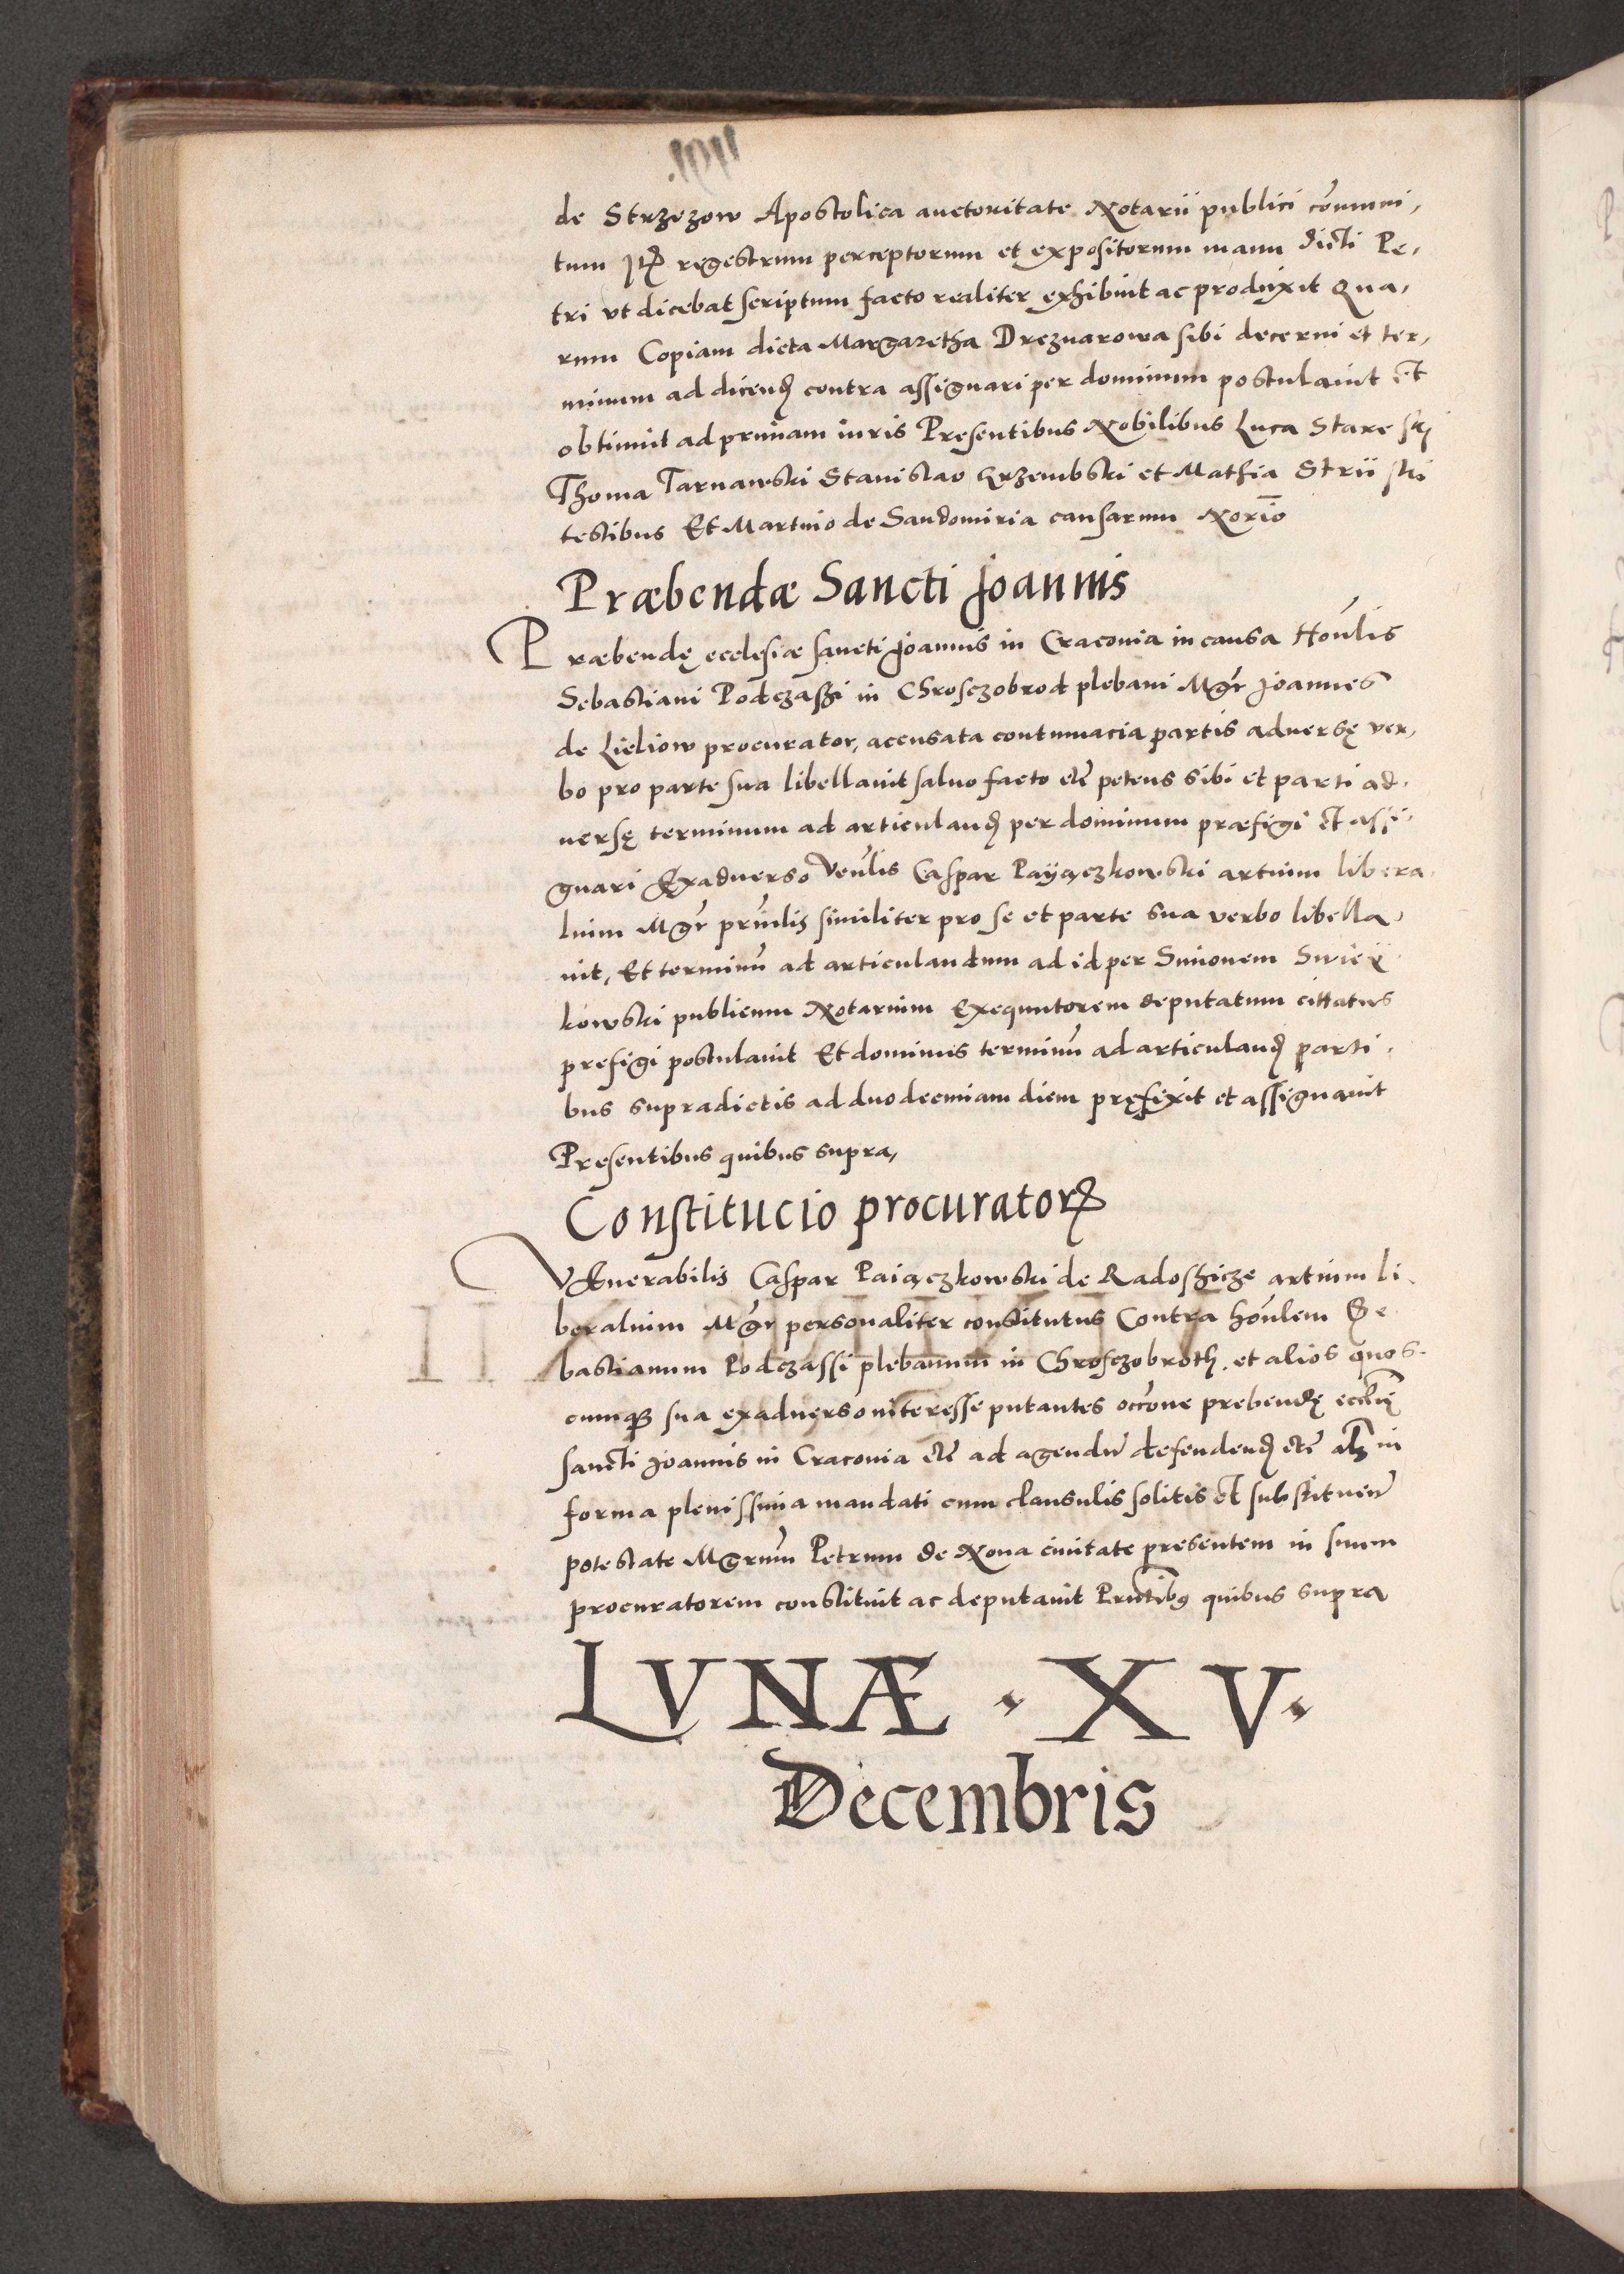 de Strzezow Apostolica auctoritate Notarii publici com̄uni,
tum Itꝫ regestrum perceptorum et expositorum manu dicti Pe,
tri vt dicebat scriptum facto realiter exhibuit ac produxit Qua,
rum Copiam dicta Margaretha Dreznarowa sibi decerni et ter,
minum ad dicendꝫ contra assignari per dominum postulauit et
obtinuit ad primam iuris Presentibus Nobilibus Luca Stare ski
Thoma Tarnawski Stanislao Krzembski et Mathia Strii ski
testibus Et Martino de Sandomiria causarum Norio̅
Præbendæ Sancti Joannis
Præbendę ecclesiæ sancti Joannis in Craconia in causa Hon̄lis
Sebastiani Podczaszi in Chrosczobrod plebani Mgr̄ Joannes
de Lieliow procurator, accusata contumacia partis aduersę ver,
bo pro parte sua libellauit saluo facto etc̄ petens sibi et parti ad,
uersę terminum ad articulandꝫ per dominum præfigi et assi,
gnari Exaduerso Ven̄lis Caspar Payączkowski artium libera,
lium Mgr̄ prin̄lis similiter pro se et parte sua verbo libella,
uit, Et terminū ad articulandum ad id per Simonem Swiey
kowski publicum Notarium Exequutorem deputatum cittatus
prefigi postulauit Et dominus terminū ad articulandꝫ parti,
bus supradictis ad duodecimam diem pręfixit et assignauit
Presentibus quibus supra,
Constitucio procuratorꝝ
VEnerabilis Caspar Paiączkowski de Radoszicze artium li,
beralium Mgr̄ personaliter constitutus Contra hon̄lem Se
bastianum Podczassi plebanum in Chrosczobroth, et alios quos,
cumqꝫ sua exaduerso interesse putantes occ̄one prebendę eccl̄ię
sancti Joannis in Craconia etc̄ ad agendū defendendꝫ etc̄ alꝫ in
forma plenissima mandati cum clausulis solitis et substituen̄
potestate Mgrum̄ Petrum de Noua ciuitate presentem in suum
procuratorem constituit ac deputauit Prn̄tibꝰ quibus supra
LVNÆ · XV ·
Decembris